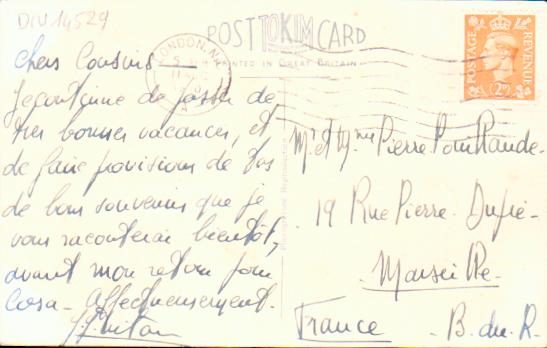 DIV 14529
POST CARD
TOKIM
PRINTED IN GREAT BRITAIN
LONDON. N.W.
POSTAGE REVENUE
2D
Chers Cousins
Je continue de passer de
très bonnes vacances, et
de faire provisions de tas
de bons souvenirs que je
vous raconterai bientôt,
avant mon retour pour
Casa - Affectueusement.
Mr et Mme Pierre
19 Rue Pierre Dupré -
Marseille -
France - B. du. R -